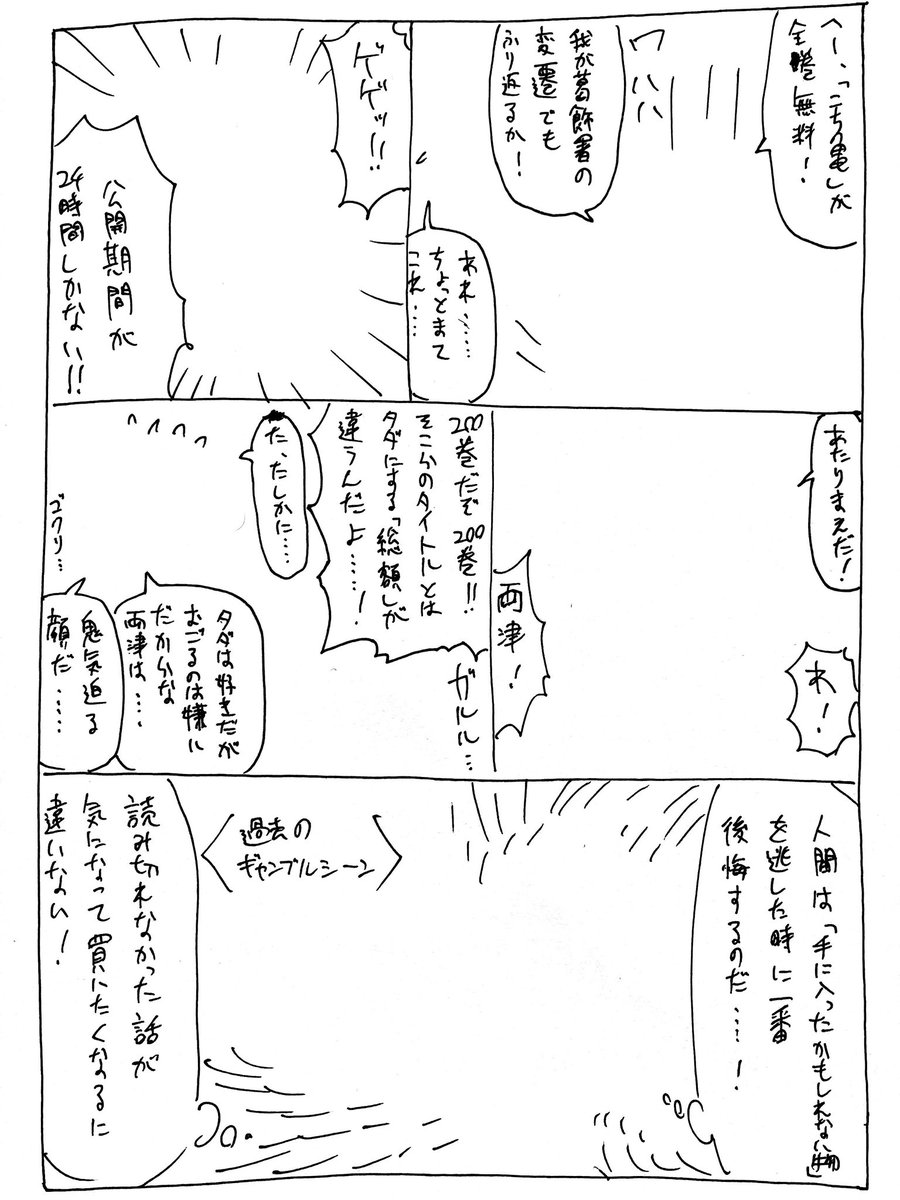 へー、「こち亀」が
全巻無料！
ワハハ
我が葛飾署の
変遷でも
ふり返るか！
あれ……
ちょっとまて
これ……
ゲゲッ!!
公開期間が
24時間しかない!!
あたりまえだ！
わ！
両津！
200巻だぞ200巻!!
そこらのタイトルとは
タダにする「総額」が
違うんだよ……！
ガルル…
た、たしかに……
タダは好きだが
おごるのは嫌い
だからな
両津は……
鬼気迫る
顔だ……
ゴクリ…
人間は「手に入ったかもしれない物」
を逃した時に一番
後悔するのだ……！
過去の
ギャンブルシーン
読み切れなかった話が
気になって買いたくなるに
違いない！